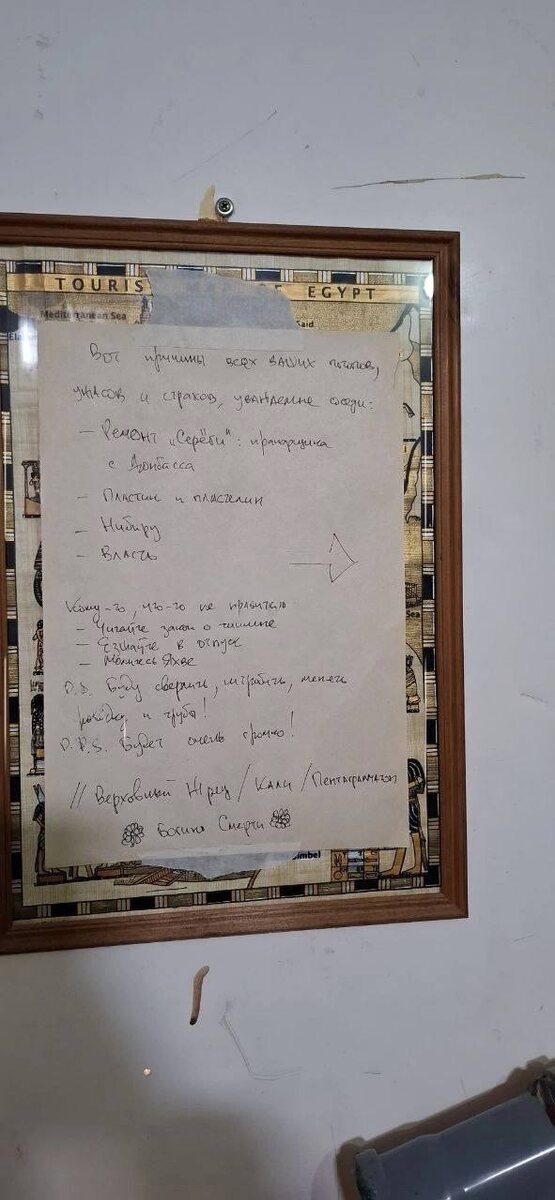 TOURIS E EGYPT
Mediterranean Sea
Said
Вот причины всех ваших потопов,
ужасов и страхов, уважаемые соседи:
– Ремонт „Серёги": прапорщика
с Донбасса
– Пластик и пластилин
– Нибиру
– Власть
Кому-то, что-то не нравится
– Читайте закон о тишине
– Езжайте в отпуск
– Молитесь Яхве
P.S. Буду сверлить, штробить, менять
и трубы!
P.P.S. Будет очень громко!
// Верховный Жрец / Кали / Пентаграмматон
Богиня Смерти
imbel